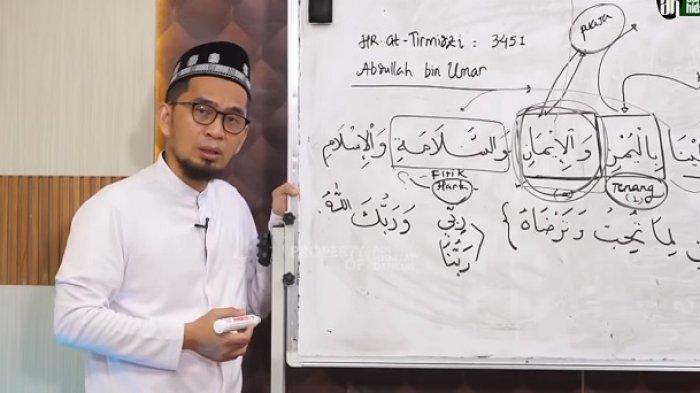 HR. at-Tirmidzi : 3451
Abdullah bin Umar
puasa
بِالْيُمْنِ وَالْإِيْمَانِ وَالسَّلَامَةِ وَالْإِسْلَامِ
Fisik
Harta
Tenang
(1)
لِمَا تُحِبُّ وَتَرْضَاهُ
رَبِّي وَرَبُّكَ اللهُ
رَبُّنَا
PROPERTY
OF